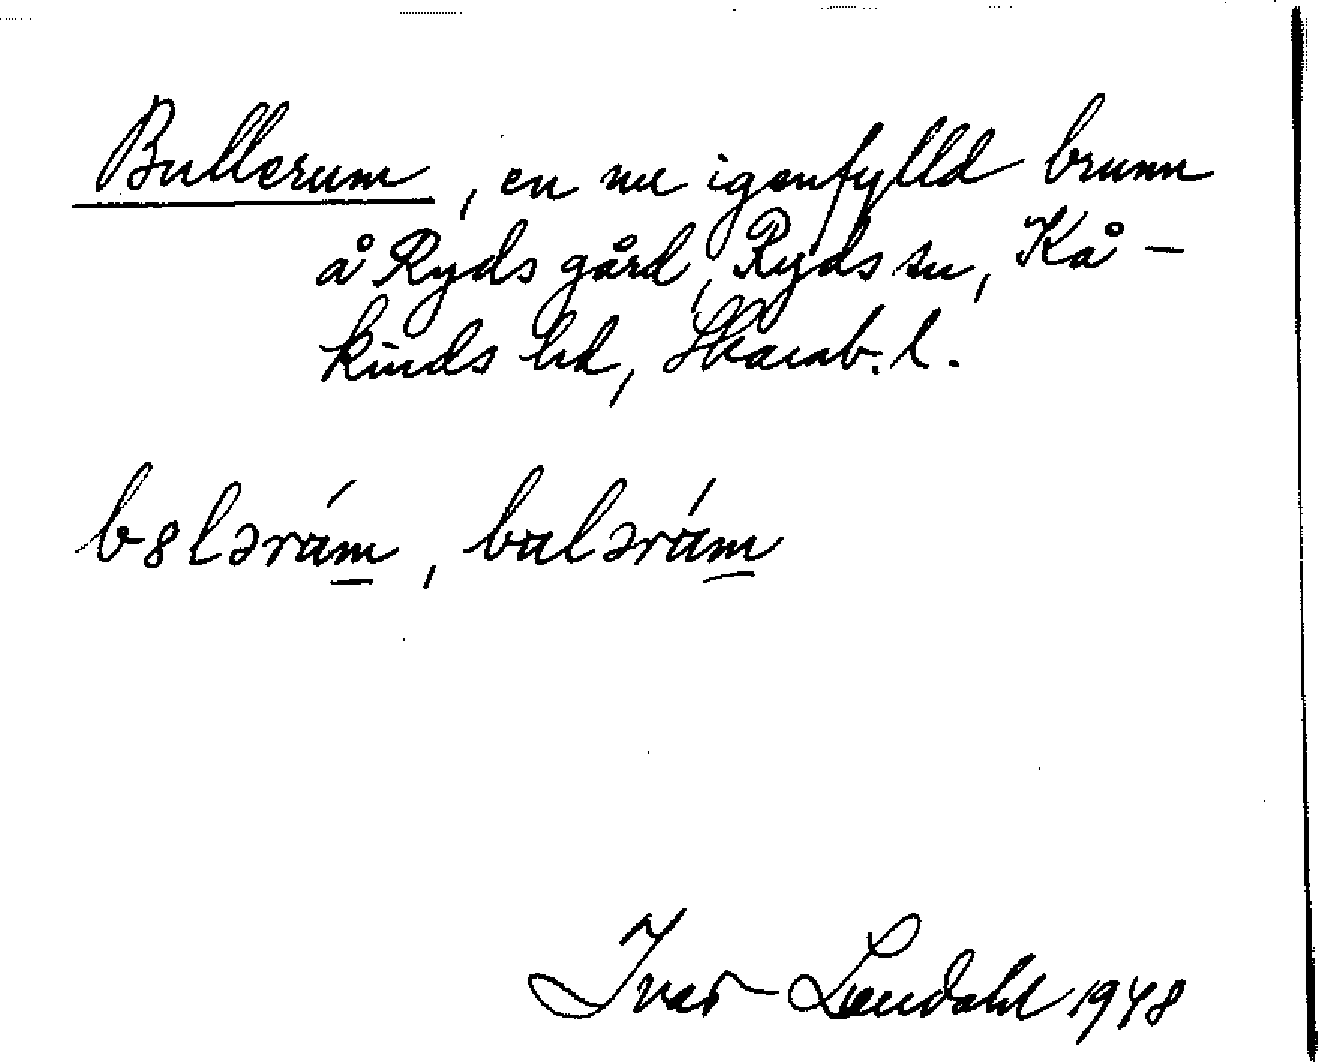 Bullerum, en nu igenfylld brunn
å Ryds gård, Ryds sn, Kå-
kinds hd, Skarab. l.
b8lərám, bulərám
Ivar Lundahl 1948